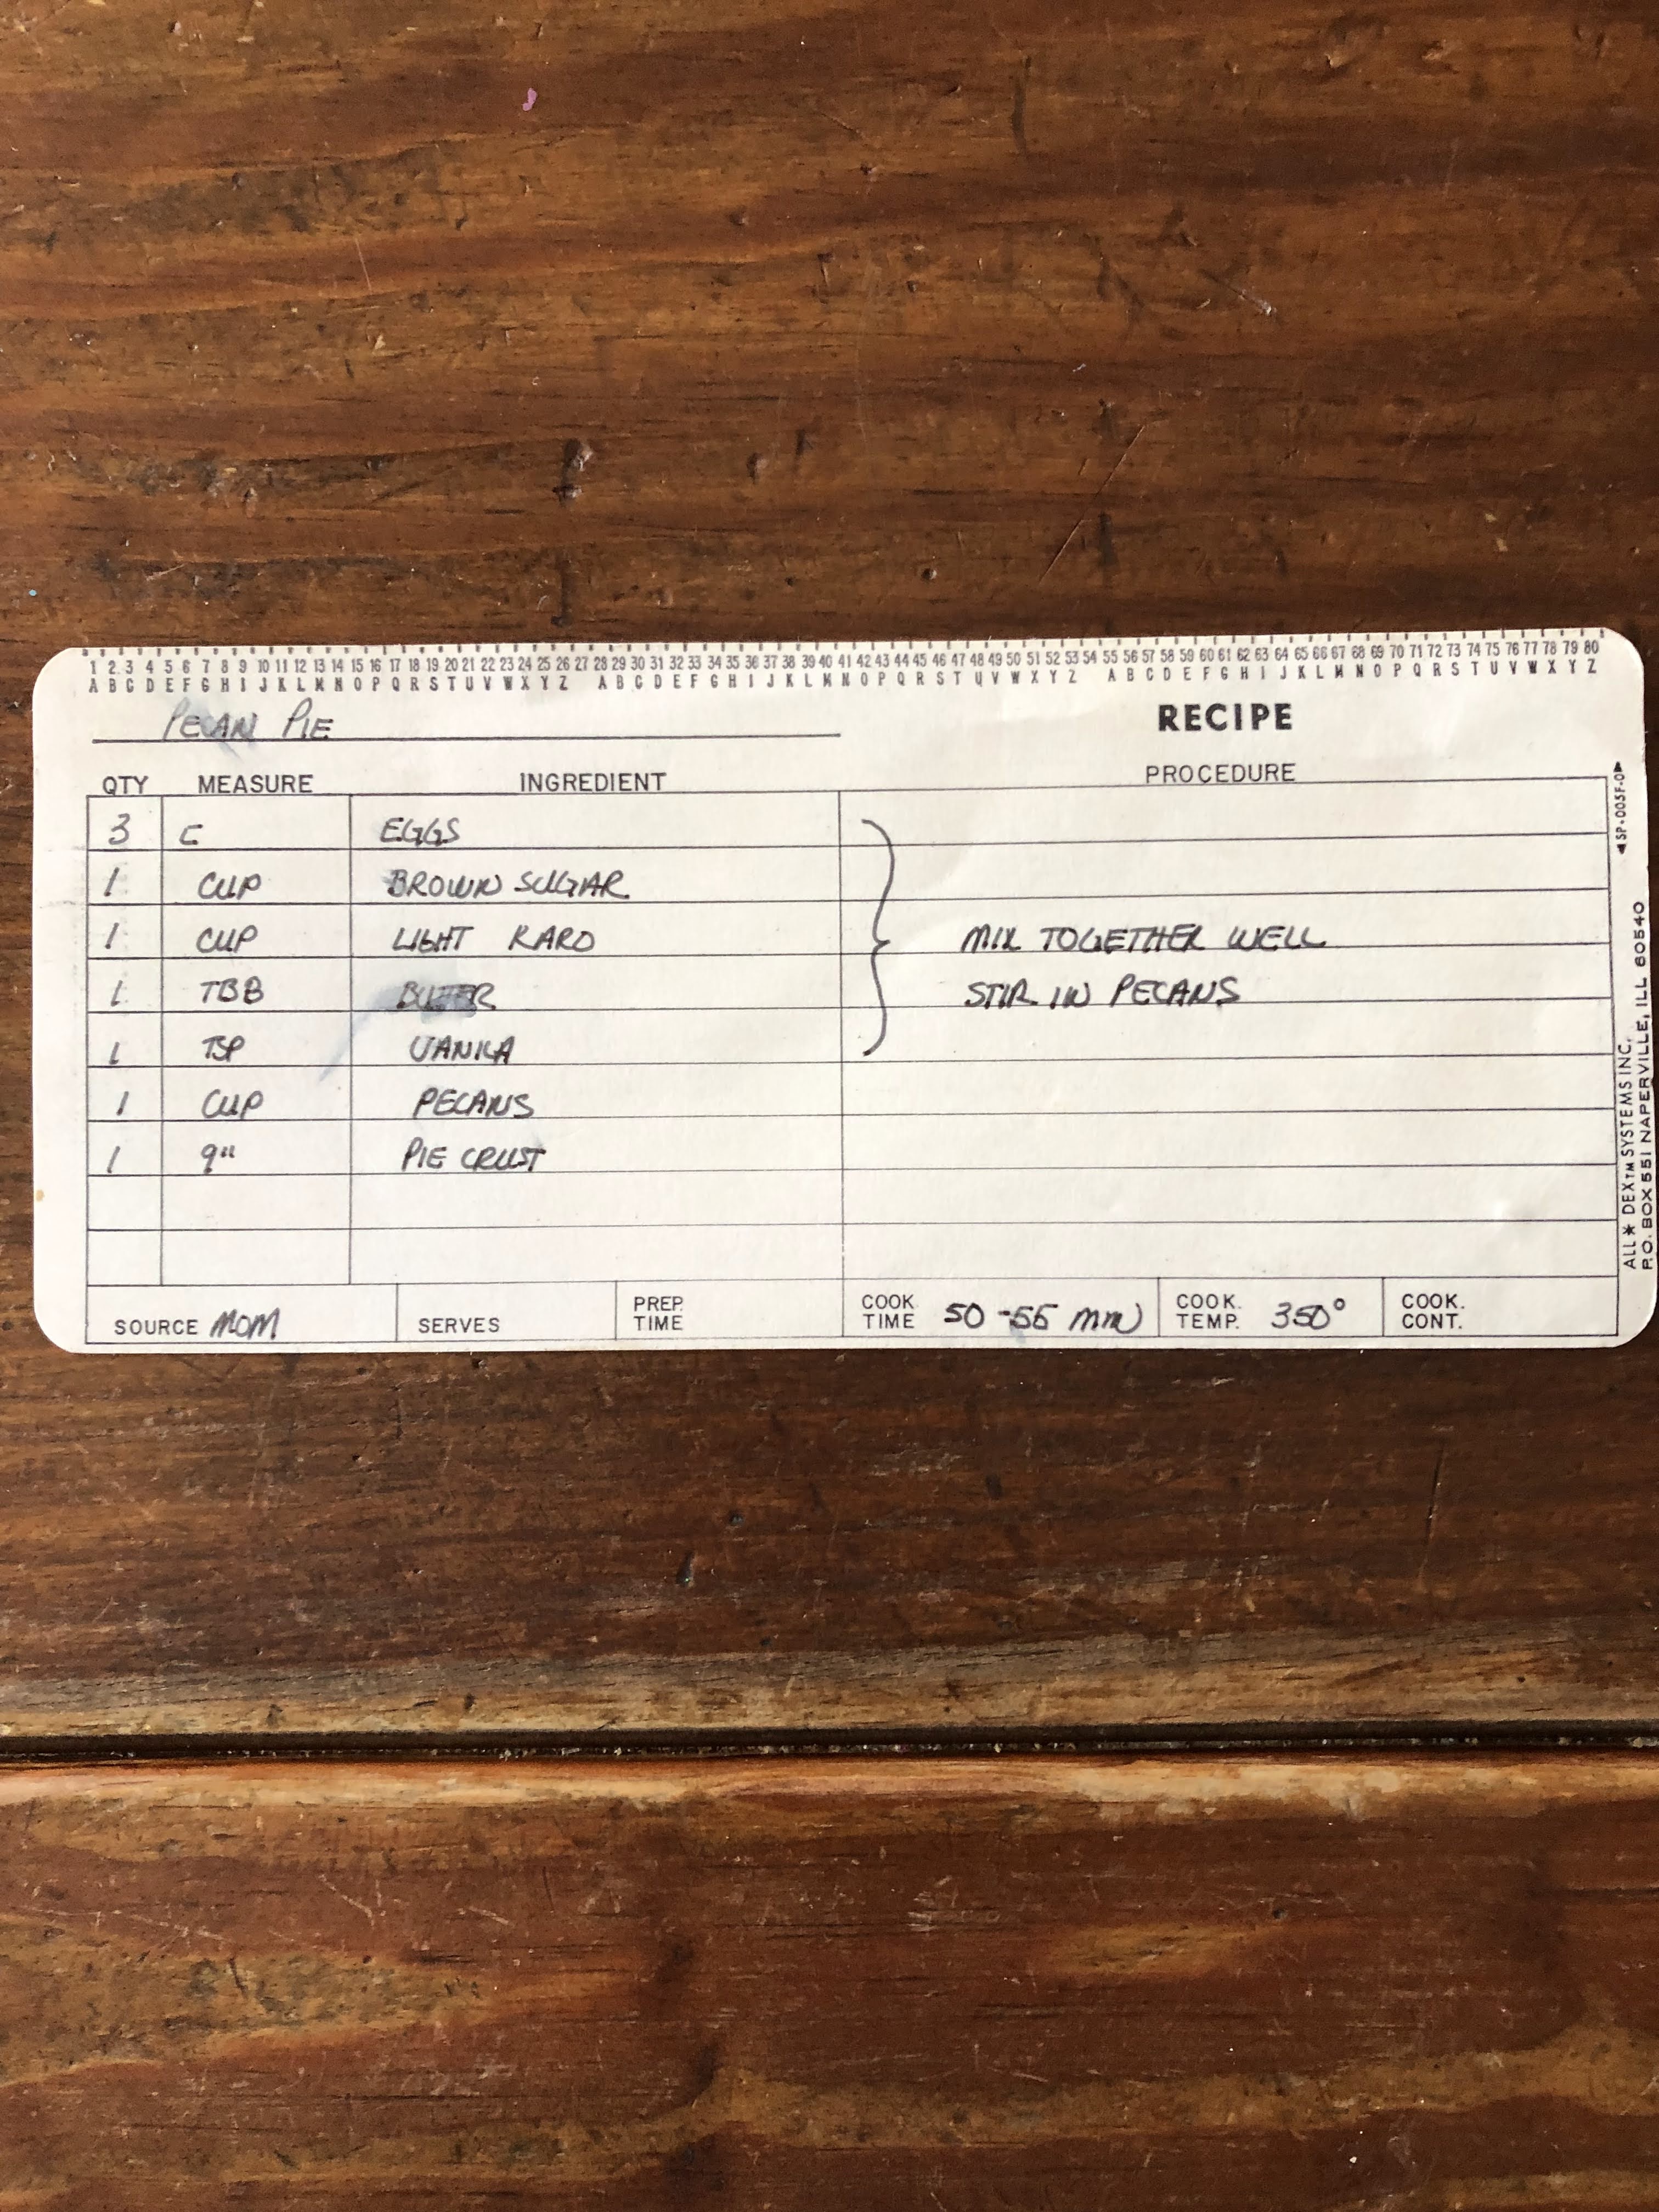 1 2 3 4 5 6 7 8 9 10 11 12 13 14 15 16 17 18 19 20 21 22 23 24 25 26 27 28 29 30 31 32 33 34 35 36 37 38 39 40 41 42 43 44 45 46 47 48 49 50 51 52 53 54 55 56 57 58 59 60 61 62 63 64 65 66 67 68 69 70 71 72 73 74 75 76 77 78 79 80
A B C D E F G H I J K L M N O P Q R S T U V W X Y Z A B C D E F G H I J K L M N O P Q R S T U V W X Y Z A B C D E F G H I J K L M N O P Q R S T U V W X Y Z
PECAN PIE RECIPE
QTY MEASURE INGREDIENT PROCEDURE
3 E EGGS
1 CUP BROWN SUGAR
1 CUP LIGHT KARO MIX TOGETHER WELL
1 TBB BUTTER STIR IN PECANS
1 TSP VANILA
1 CUP PECANS
1 9" PIE CRUST
SOURCE MOM SERVES PREP. TIME COOK TIME 50-55 min COOK. TEMP. 350° COOK. CONT.
◄SP-005F-0►
ALL* DEX™ SYSTEMS INC.
P.O. BOX 551 NAPERVILLE, ILL 60540